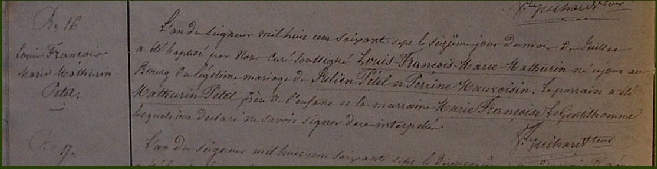 No 16
Louis François
Marie Mathurin
Petel.
L'an du Seigneur mil huit cent soixante sept le sizième jour du mois de Juillet
a été baptisé par Nous Curé soussigné Louis-François-Marie-Mathurin né ce jour au
Bourg du légitime mariage de Julien Petel et Perrine Mauvoisin. Le parrain a été
Mathurin Petel frère de l'enfant et la marraine Marie Françoise Le Gentilhomme
lesquels ont déclaré ne savoir signer de ce interpelés
Guihard
No 17.
L'an du Seigneur mil huit cent soixante sept le